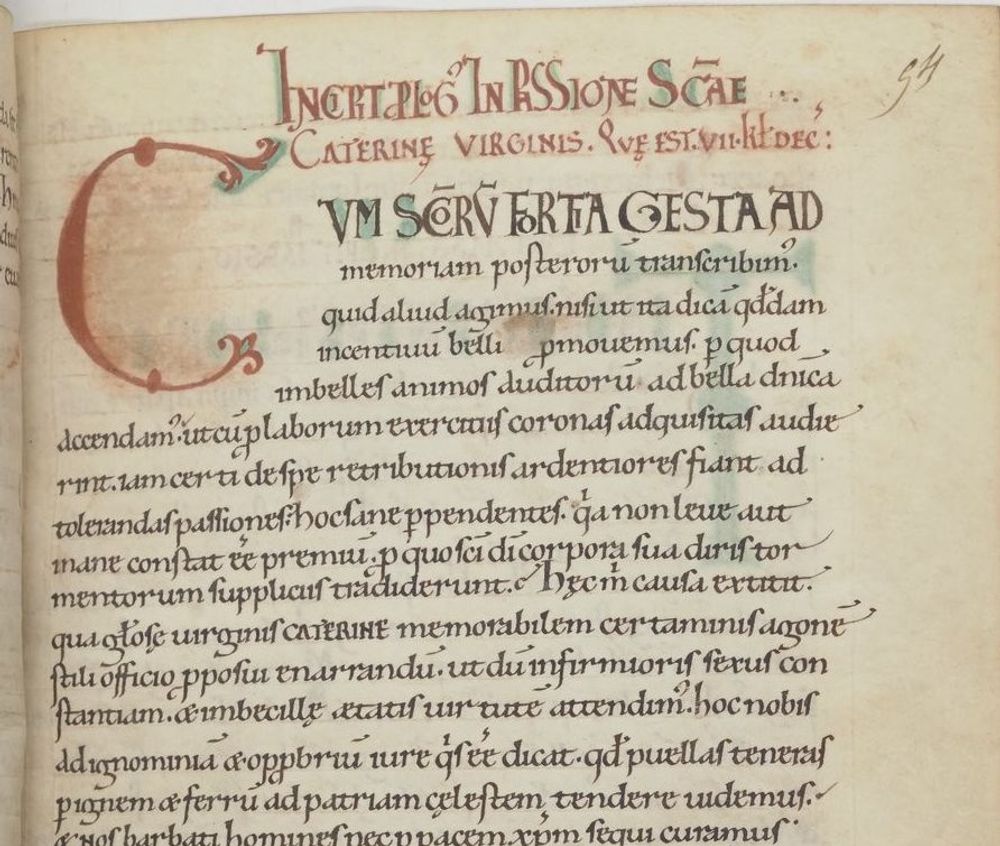 INCIPIT PLOG᷒ IN PASSIONE SC̅AE
CATERINĘ VIRGINIS. QVĘ EST. VII. KL̅ DEC̅:
94
CVM SC̅ORV̅ FORTIA GESTA AD
memoriam posteroru̅ transcribim᷒.
quid aliud agimus. nisi ut ita dica̅ qd̅dam
incentiuu̅ belli ꝓmouemus. ꝑ quod
imbelles animos auditoru̅ ad bella dn̅ica
accendam᷒. ut cu̅ ꝑ laborum exercitiis coronas adquisitas audie
rint. iam certi de spe retributionis ardentiores fiant ad
tolerandas passiones. hoc sane ꝑpendentes. qͥa non leue aut
inane constat ee̅ premiu̅. ꝑ quo sc̅i di̅ corpora sua diris tor
mentorum suppliciis tradiderunt. Hęc mͥ causa extitit.
qua gl̅osę uirginis CATERINE memorabilem certaminis agone̅
stili officio ꝓposui enarrandu̅. ut du̅ infirmioris sexus con
stantiam. & imbecillę ætatis uirtute̅ attendim᷒. hoc nobis
ad ignominia̅ & opꝓbriu̅ iure qͥs ee̅ dicat. qd̅ puellas teneras
ꝑ ignem & ferru̅ ad patriam cęlestem tendere uidemus.
& nos barbati homines nec ꝑ pacem xp̅m sequi curamus